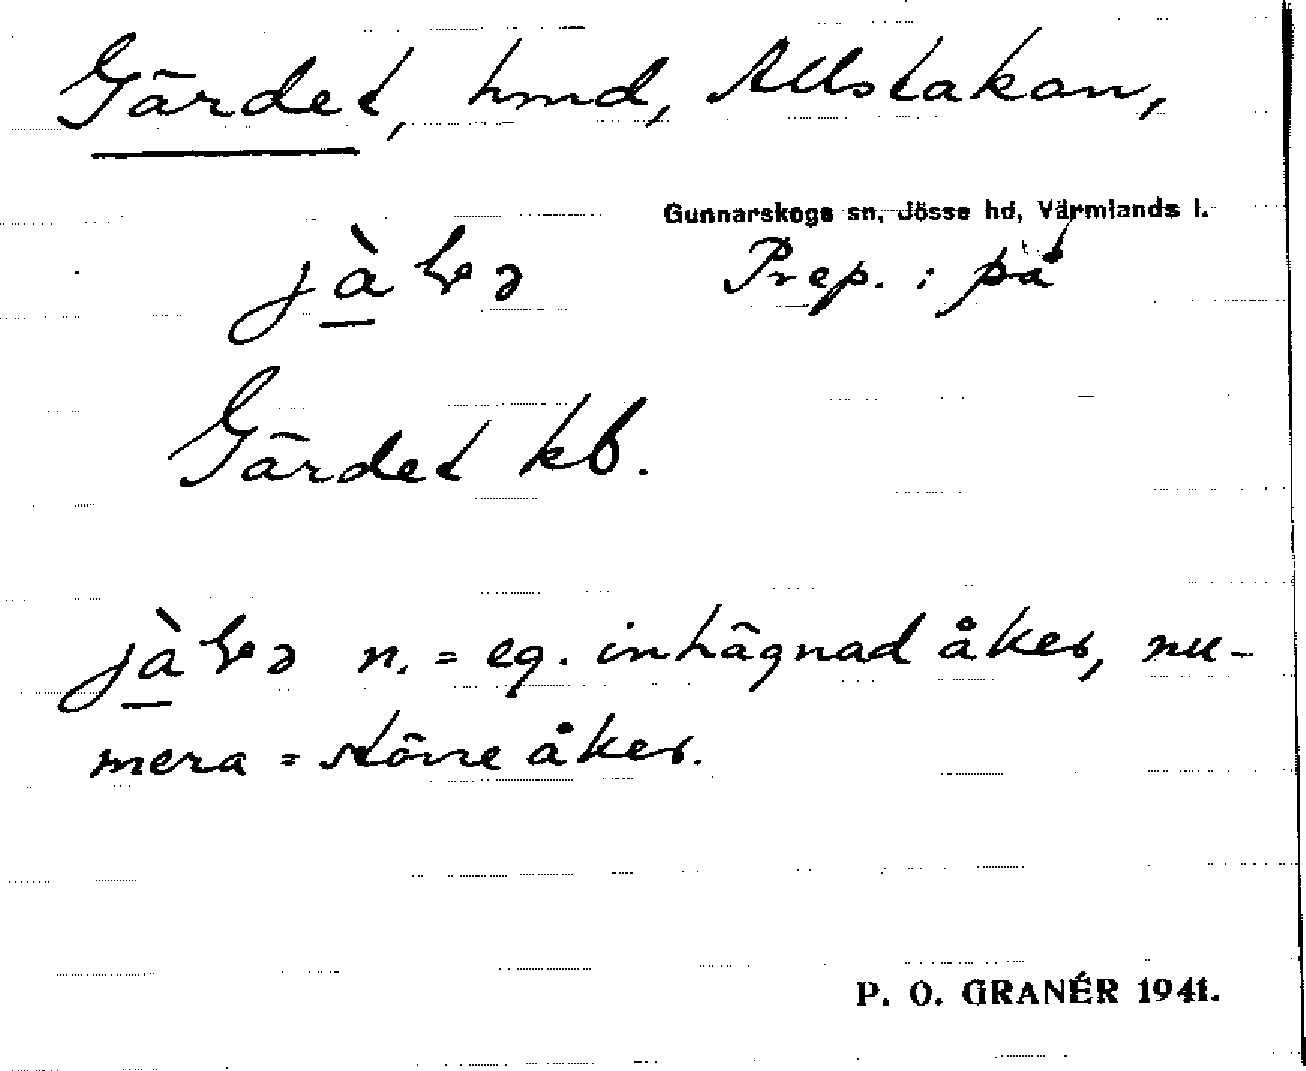 Gärdet, hmd, Allstakan,
Gunnarskogs sn, Jösse hd, Värmlands l.
Prep. : på
Gärdet kb.
n. = eg. inhägnad åker, nu-
mera = större åker.
P. O. GRANÉR 1941.